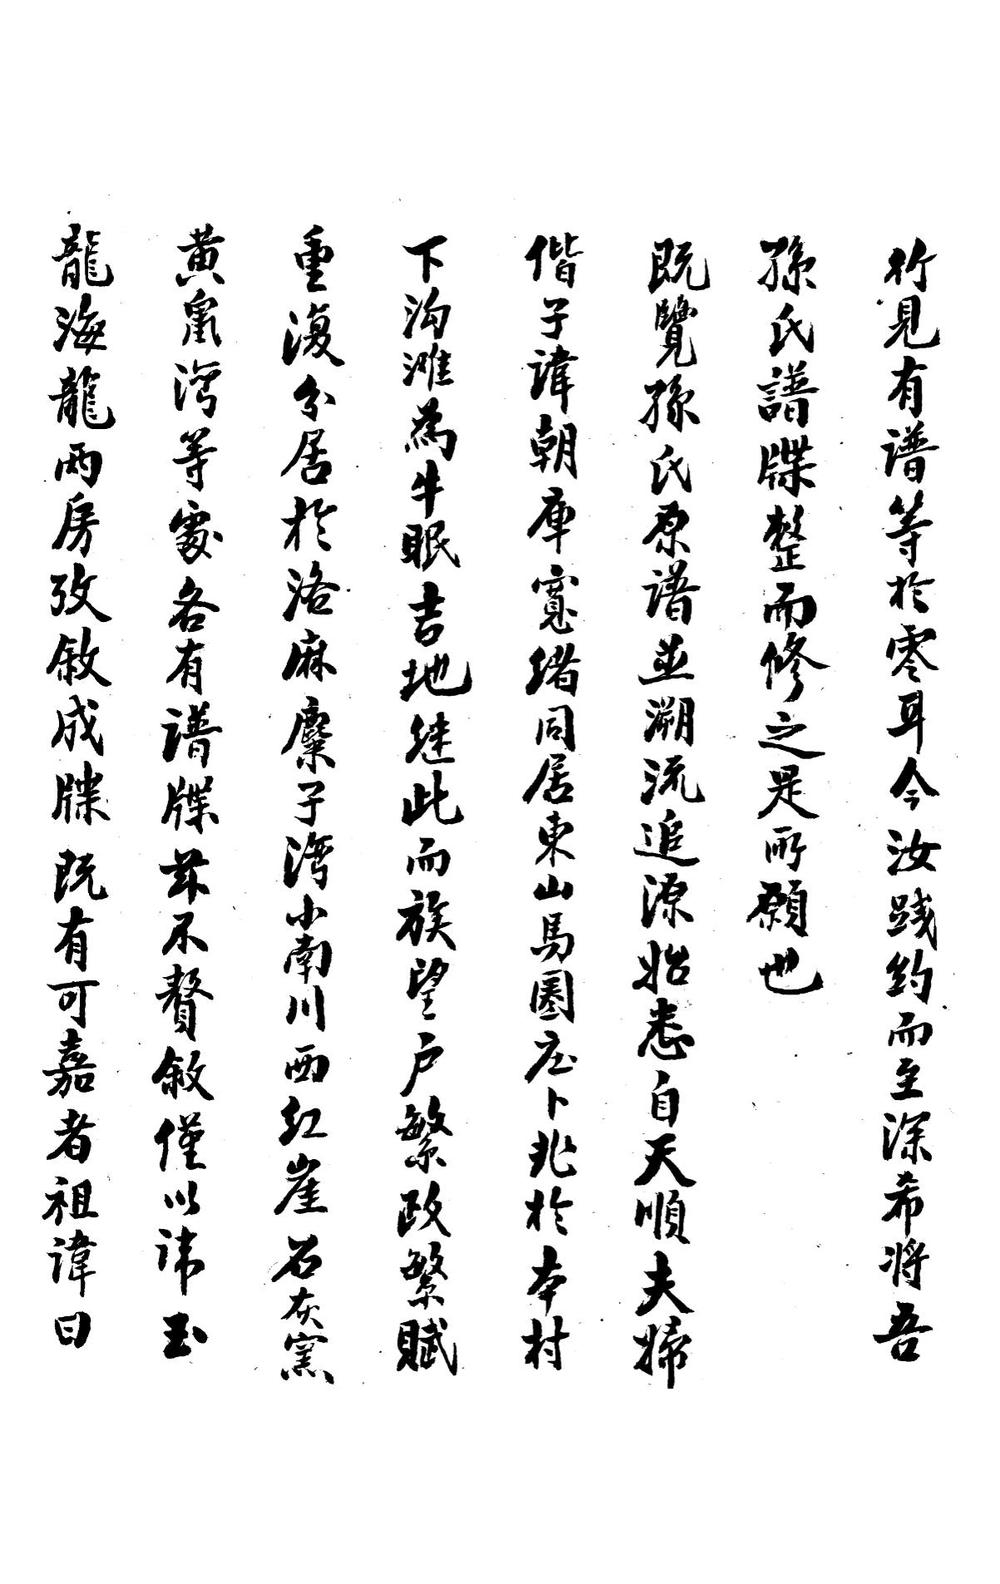 行見有谱等於零耳今汝踐约而至深希将吾
孫氏譜牒整而修之是所願也
既覽孫氏原谱並溯流追源始悉自天順夫婦
偕子諱朝庫寬緒同居東山馬圈庄卜兆於本村
下沟滩為牛眠吉地继此而族望户繁政繁賦
重復分居於洛麻糜子湾小南川西红崖石灰窯
黄鼠湾等處各有谱牒兹不贅敘僅以讳玉
龍海龍两房攷敘成牒既有可嘉者祖諱曰